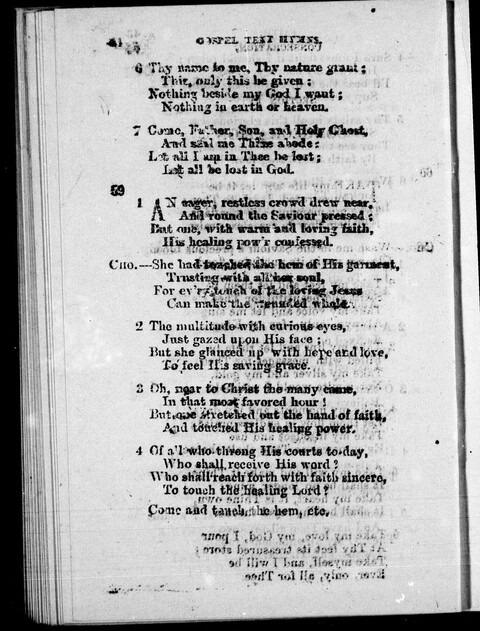 GOSPEL TEXT HYMNS.
6 Thy name to me, Thy nature grant;
This, only this be given;
Nothing beside my God I want;
Nothing in earth or heaven.
7 Come, Father, Son, and Holy Ghost,
And seal me Thine abode;
Let all I am in Thee be lost;
Let all be lost in God.
59
1 AN eager, restless crowd drew near,
And round the Saviour pressed;
But one, with warm and loving faith,
His healing pow'r confessed.
CHO.—She had touched the hem of His garment,
Trusting with all her soul,
For ev'ry touch of the loving Jesus
Can make the wounded whole.
2 The multitude with curious eyes,
Just gazed upon His face;
But she glanced up with hope and love,
To feel His saving grace.
3 Oh, near to Christ the many came,
In that most favored hour!
But one stretched out the hand of faith,
And touched His healing power.
4 Of all who throng His courts to-day,
Who shall receive His word?
Who shall reach forth with faith sincere,
To touch the healing Lord?
Come and touch the hem, etc.